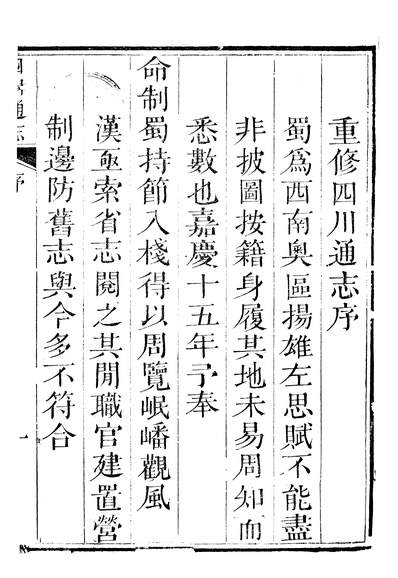 重修四川通志序
蜀爲西南奧區揚雄左思賦不能盡
非披圖按籍身履其地未易周知而
悉數也嘉慶十五年予奉
命制蜀持節入棧得以周覽岷嶓觀風
漢亟索省志閱之其閒職官建置營
制邊防舊志與今多不符合
四川通志
序
一